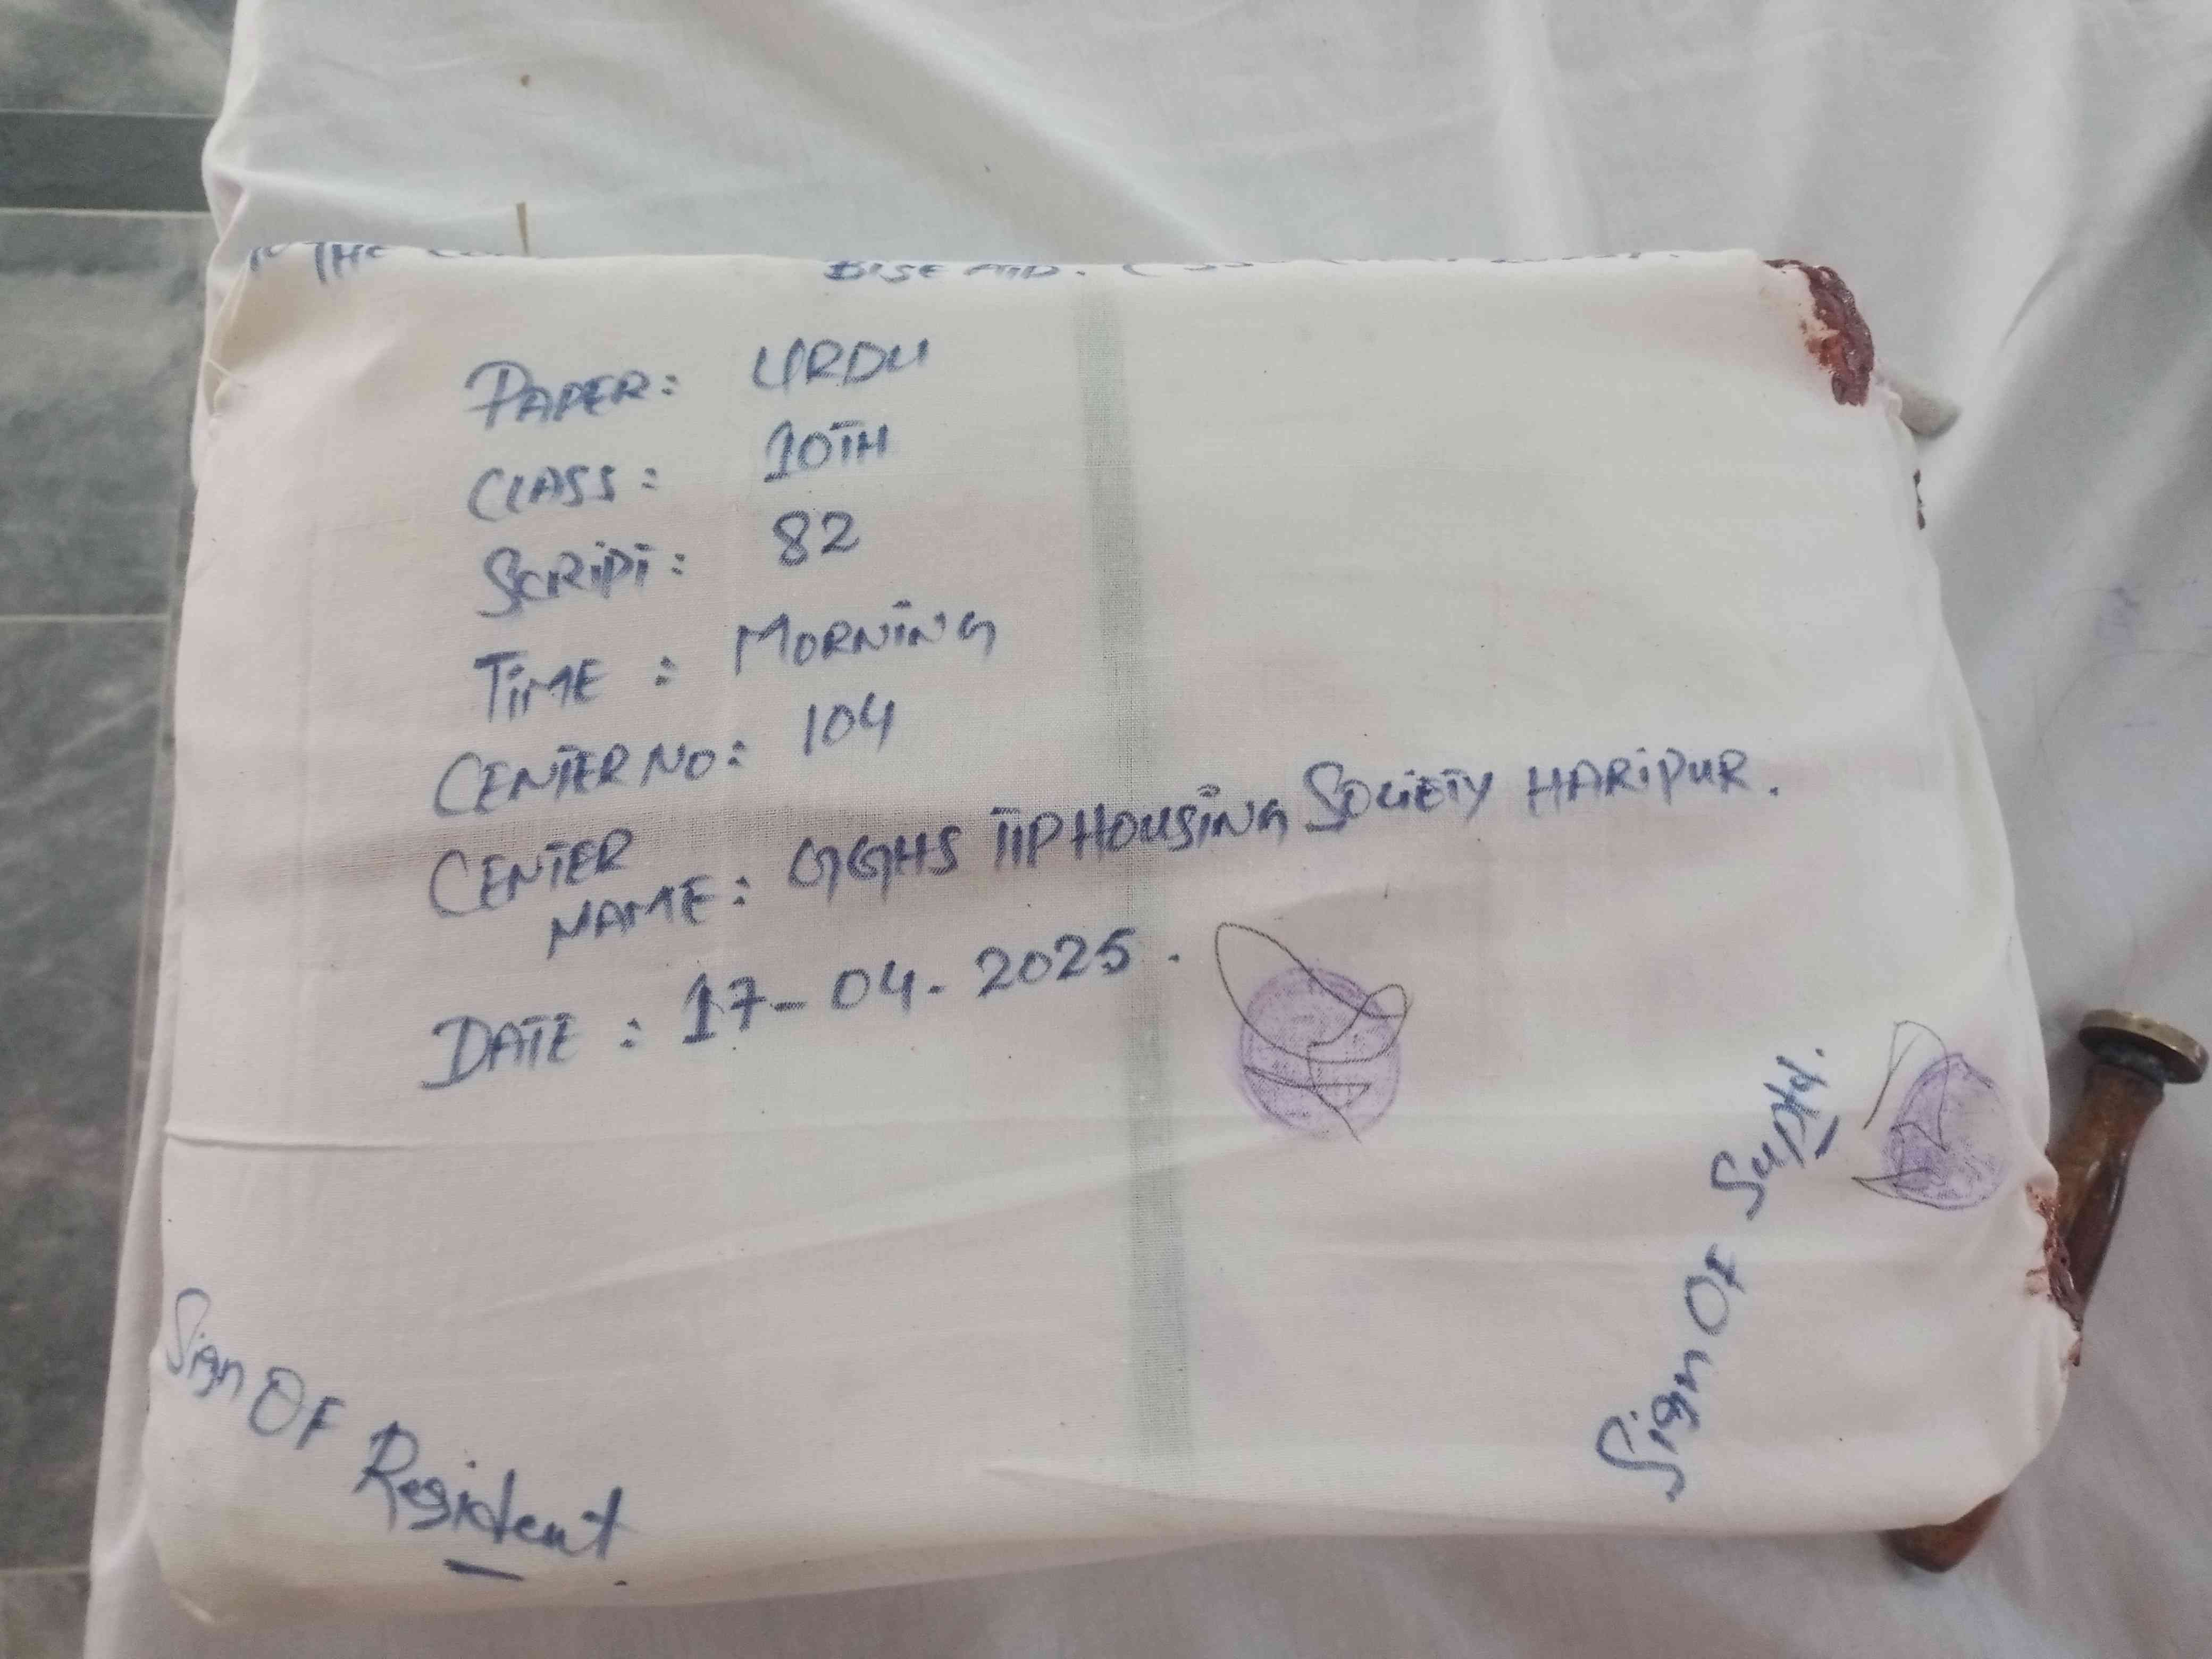 TO THE
BISE ATD.
PAPER: URDU
CLASS: 10TH
SCRIPT: 82
TIME: MORNING
CENTER NO: 104
CENTER
NAME: GGHS TIP HOUSING SOCIETY HARIPUR.
DATE: 17-04.2025.
Sign OF Resident
Sign Of Suptd.